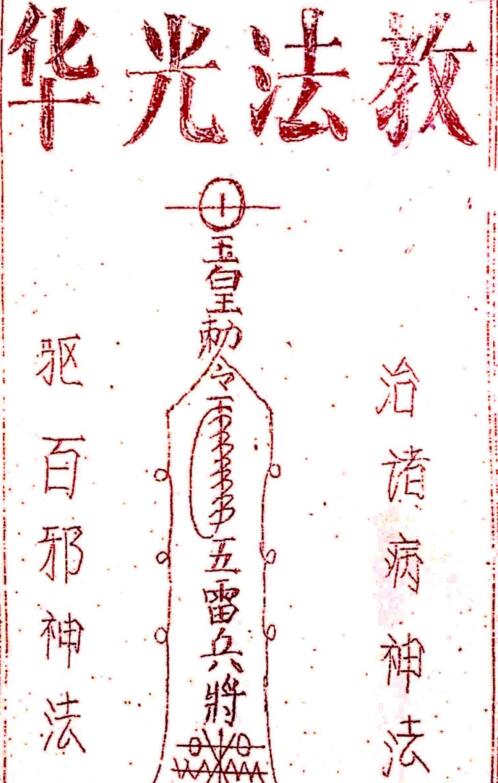 华光法教
玉皇勅令
五雷兵將
治诸病神法
驱百邪神法